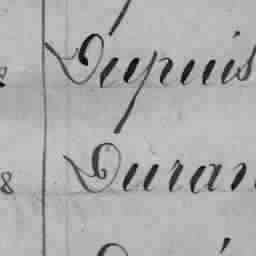 Dupuis
8 Duran